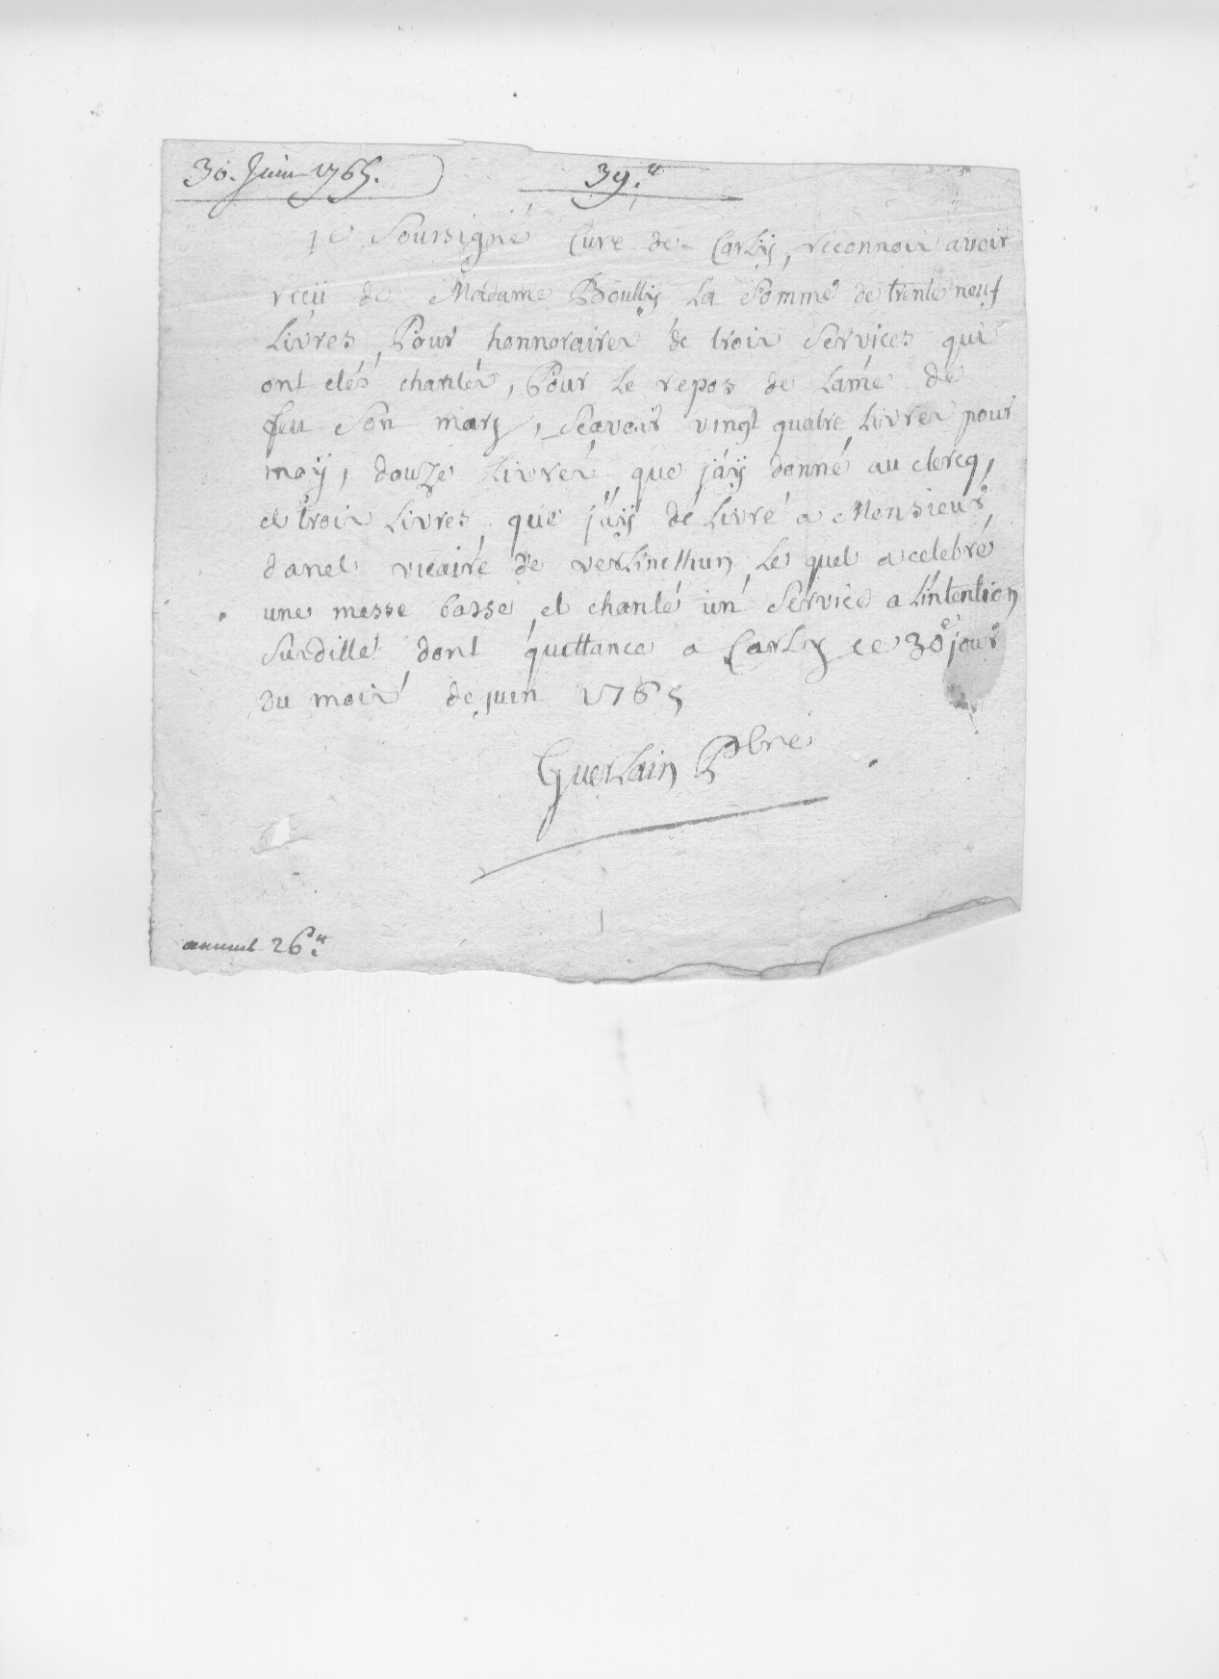 30. Juin 1765. 39.#
je Soussigné Curé de Carly, reconnois avoir
reçü de Madame Boully La Somme de trente neuf
Livres, Pour honnoraires de trois Services qui
ont etés chantés, Pour Le repos de Lame de
feu Son mary, Sçavoir vingt quatre Livres pour
moÿ, douze Livres que j'aÿ donné au clercq,
et trois Livres que j'aÿ déLivré a Monsieur
danel vicaire de verLincthun Le quel a celebré
une messe basse et chanté un Service a L'intention
Susditte dont quittance a CarLy ce 30e jour
du mois de juin 1765
GuerLain Pbre
26.#